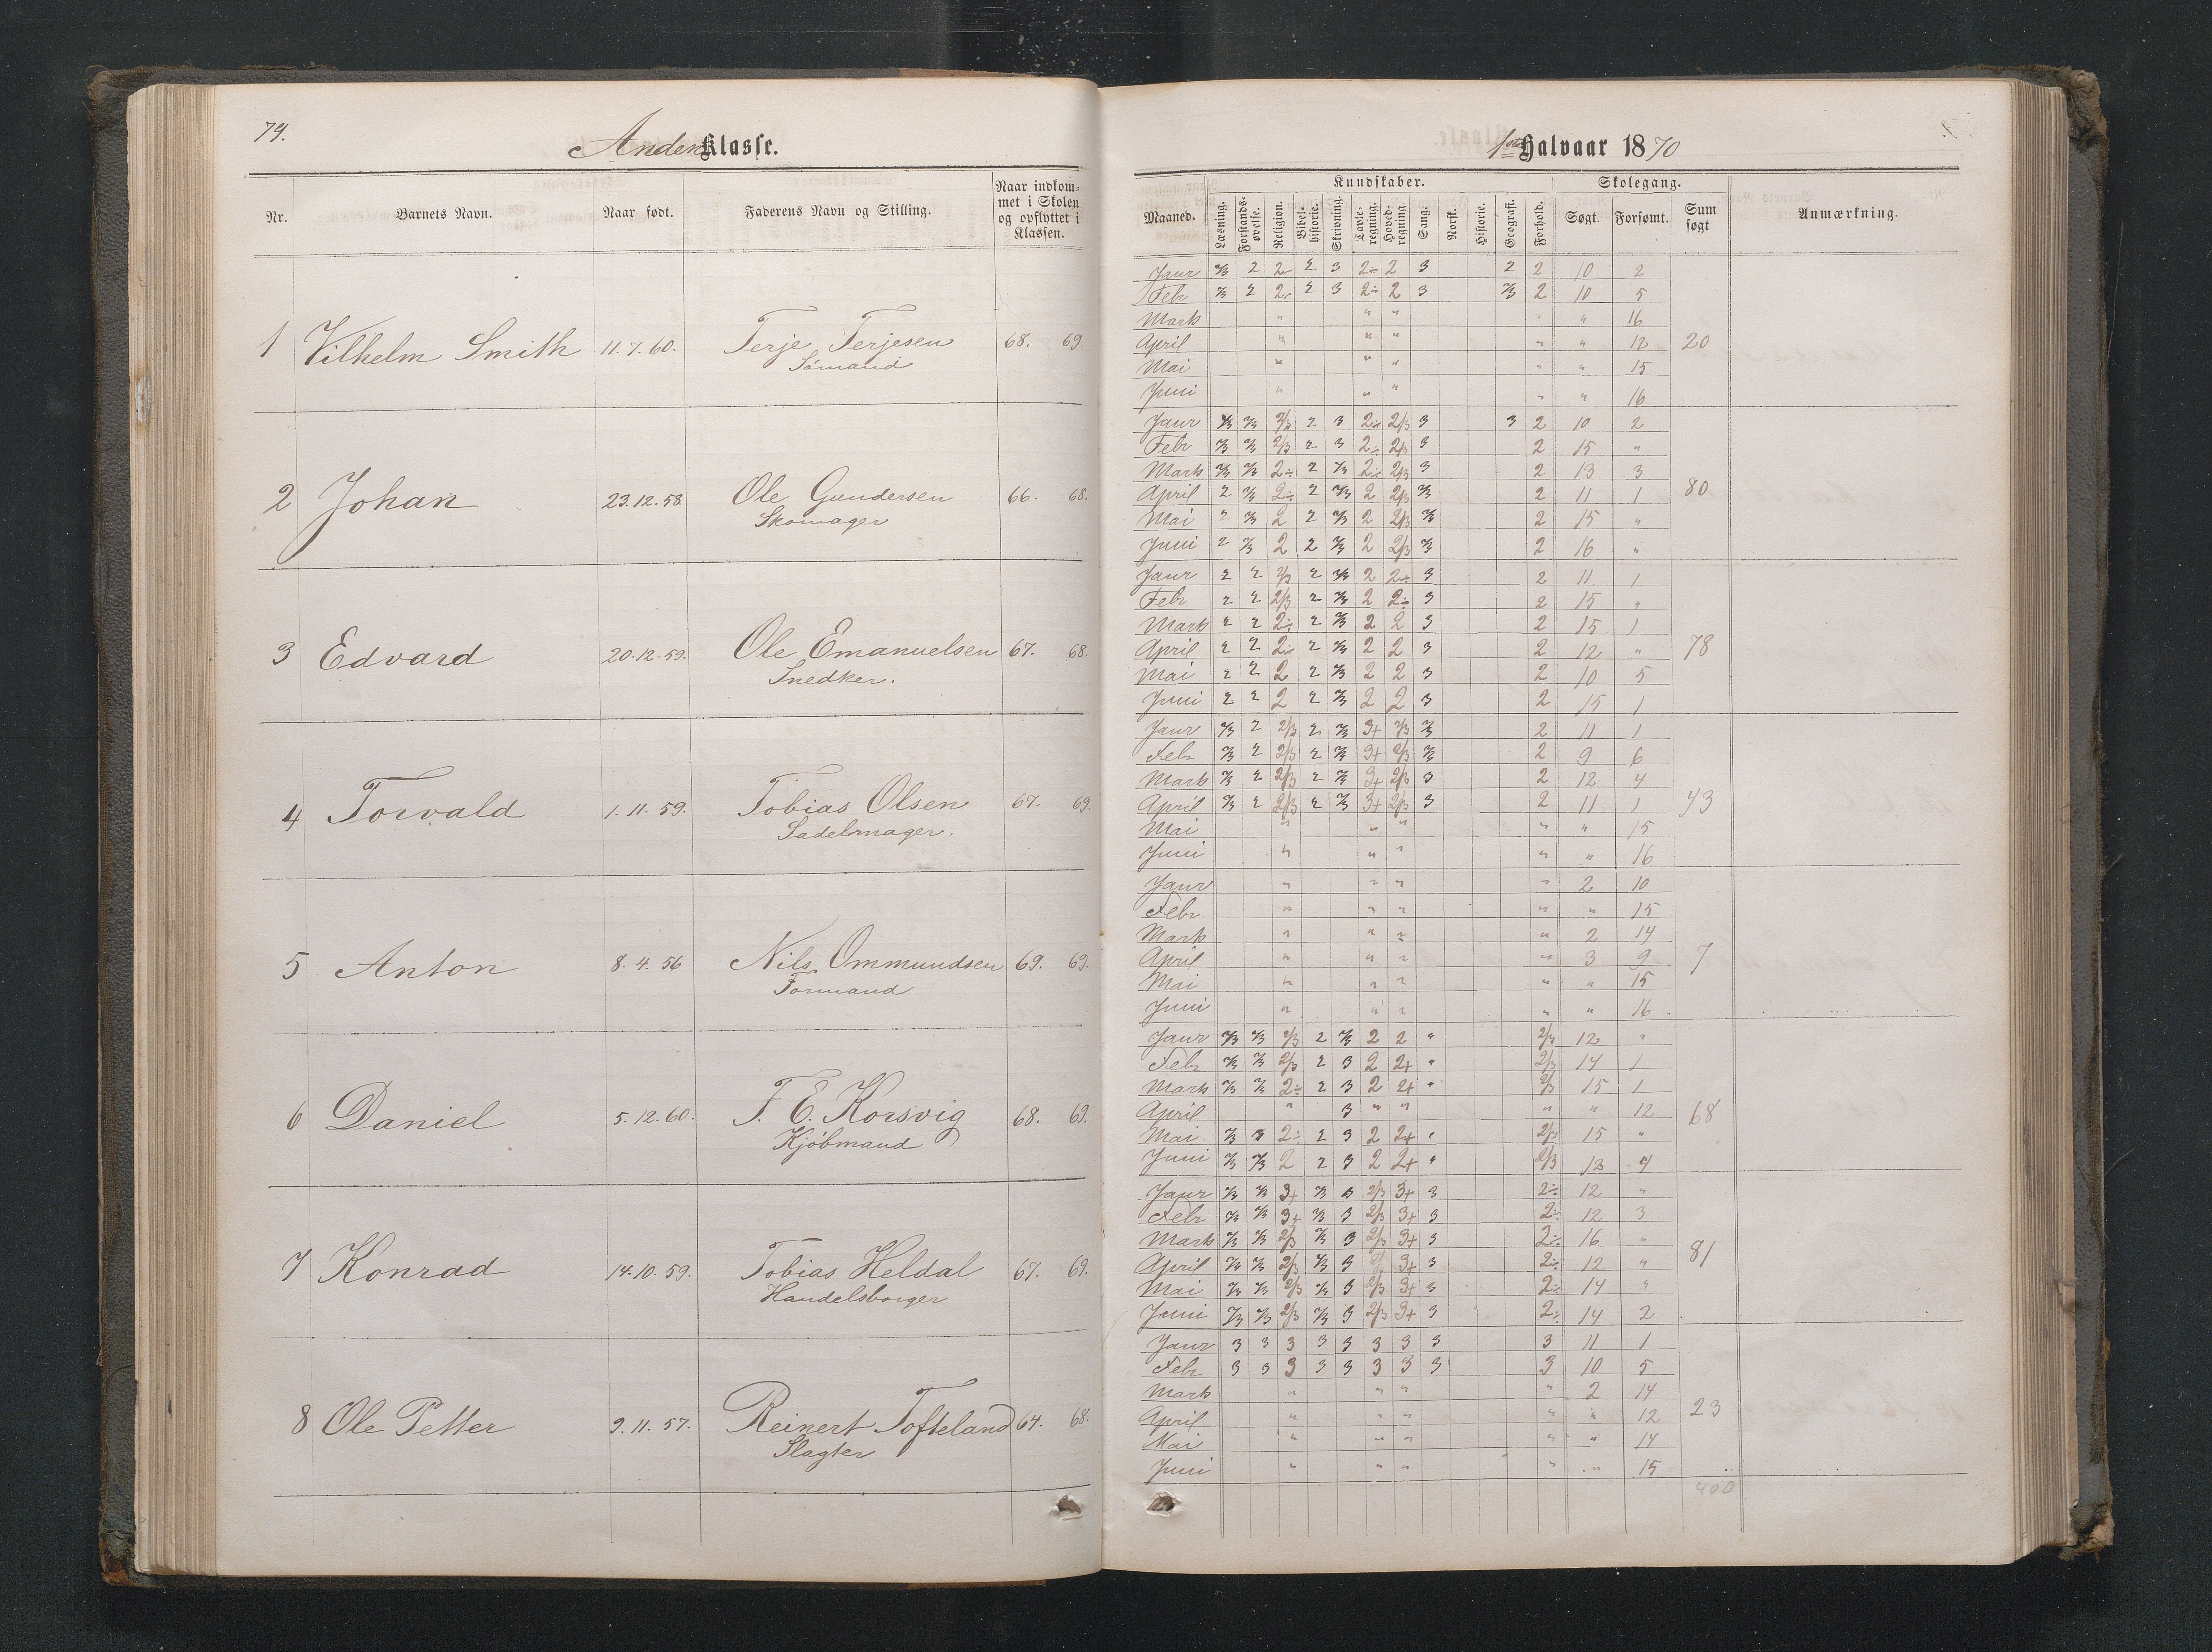 79.
Anden Klasse.
Nr. Barnets Navn. Naar født. Faderens Navn og Stilling. Naar indkommet i Skolen og opflyttet i Klassen.
1 Vilhelm Smith 11.7.60. Terje Terjesen 68. 69.
Sømand
2 Johan 23.12.58 Ole Gundersen 66. 68.
Skomager
3 Edvard 20.12.59. Ole Emanuelsen 67. 68.
Snedker.
4 Torvald 1.11.59. Tobias Olsen 67. 69.
Sadelmager.
5 Anton 8.4.56 Nils Ommundsen 69. 69.
Formand
6 Daniel 5.12.60. F. E. Korsvig 68. 69.
Kjøbmand
7 Konrad 14.10.59. Tobias Heldal 67. 69.
Handelsborger
8 Ole Petter 9.11.57. Reinert Tofteland 64. 68.
Slagter
1ste Halvaar 1870
Kundskaber. Skolegang.
Maaned. Læsning. Forstandsøvelse. Religion. Bibelhistorie. Skrivning. Tavleregning. Hovedregning. Sang. Norsk. Historie. Geografi. Forhold. Søgt. Forsømt. Sum søgt Anmærkning.
Janr 2/3 2 2÷ 2 3 2÷ 2 3 2 2 10 2
Febr 2/3 2 2÷ 2 3 2÷ 2 3 2/3 2 10 5
Mark " " " " " 16
April " " " " " 12 20
Mai " " " " " 15
Juni " " " " " 16
Janr 2/3 2/3 2/3 2 3 2÷ 2/3 3 3 2 10 2
Febr 2/3 2/3 2/3 2 3 2÷ 2/3 3 2 15 "
Mark 2/3 2/3 2÷ 2 2/3 2÷ 2/3 3 2 13 3
April 2 2/3 2÷ 2 2/3 2 2/3 2/3 2 11 1 80
Mai 2 2/3 2 2 2/3 2 2/3 2/3 2 15 "
Juni 2 2/3 2 2 2/3 2 2/3 2/3 2 16 "
Janr 2 2 2/3 2 2/3 2 2÷ 3 2 11 1
Febr 2 2 2/3 2 2/3 2 2÷ 3 2 15 "
Mark 2 2 2÷ 2 2/3 2 2 3 2 15 1
April 2 2 2÷ 2 2/3 2 2 3 2 12 " 78
Mai 2 2 2 2 2/3 2 2 3 2 10 5
Juni 2 2 2 2 2/3 2 2 3 2 15 1
Janr 2/3 2 2/3 2 2/3 3+ 2/3 2/3 2 11 1
Febr 2/3 2 2/3 2 2/3 3+ 2/3 2/3 2 9 6
Mark 2/3 2 2/3 2 2/3 3+ 2/3 3 2 12 4
April 2/3 2 2/3 2 2/3 3+ 2/3 3 2 11 1 43
Mai " " " " " 15
Juni " " " " " 16
Janr " " " " 2 10
Febr " " " " " 15
Mark " " " " 2 14
April " " " " 3 9 7
Mai " " " " " 15
Juni " " " " " 16
Janr 2/3 2/3 2/3 2 2/3 2 2 " 2/3 12 "
Febr 2/3 2/3 2/3 2 3 2 2+ " 2/3 14 1
Mark 2/3 2/3 2÷ 2 3 2 2+ " 2/3 15 1
April " 3 " " " " 12 68
Mai 2/3 3 2÷ 2 3 2 2+ " 2/3 15 "
Juni 2/3 2/3 2 2 3 2 2+ " 2/3 12 4
Janr 2/3 2/3 3+ 2/3 3 2/3 3+ 3 2÷ 12 "
Febr 2/3 2/3 3+ 2/3 3 2/3 3+ 3 2÷ 12 3
Mark 2/3 2/3 2/3 2/3 3 2/3 3+ 3 2÷ 16 "
April 2/3 2/3 2/3 2/3 3 2/3 3+ 3 2÷ 12 " 81
Mai 2/3 2/3 2/3 2/3 3 2/3 3+ 3 2÷ 14 "
Juni 2/3 2/3 2/3 2/3 3 2/3 3+ 3 2÷ 14 2
Janr 3 3 3 3 3 3 3 3 3 11 1
Febr 3 3 3 3 3 3 3 3 3 10 5
Mark " " " " 2 14
April " " " " " 12 23
Mai " " " " " 14
Juni " " " " " 15
400